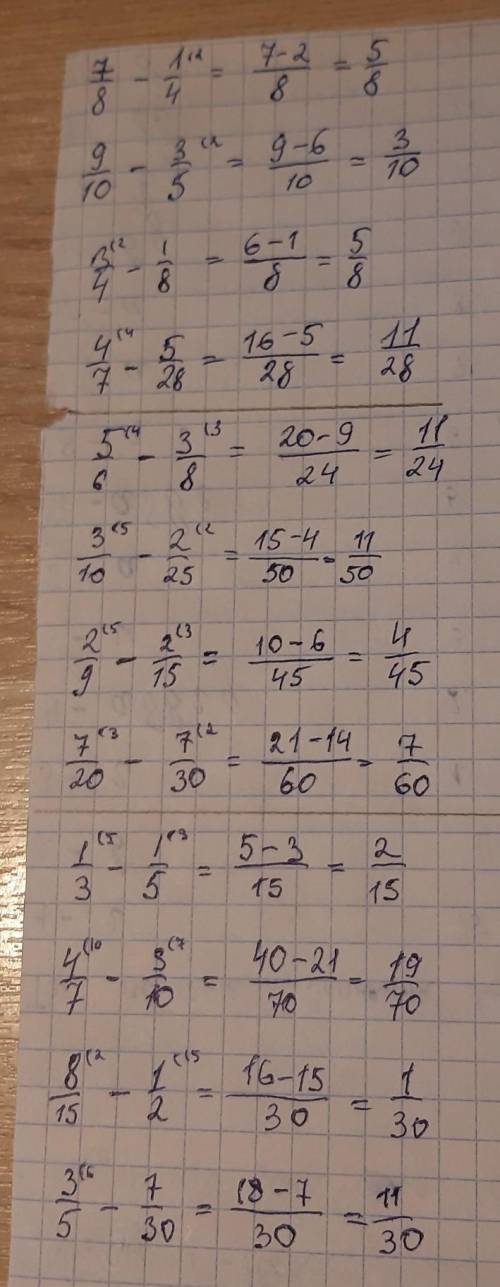 7/8 - 1(2/4 = 7-2/8 = 5/8
9/10 - 3(2/5 = 9-6/10 = 3/10
3(2/4 - 1/8 = 6-1/8 = 5/8
4(4/7 - 5/28 = 16-5/28 = 11/28
5(4/6 - 3(3/8 = 20-9/24 = 11/24
3(5/10 - 2(2/25 = 15-4/50 = 11/50
2(5/9 - 2(3/15 = 10-6/45 = 4/45
7(3/20 - 7(2/30 = 21-14/60 = 7/60
1(5/3 - 1(3/5 = 5-3/15 = 2/15
4(10/7 - 3(7/10 = 40-21/70 = 19/70
8(2/15 - 1(15/2 = 16-15/30 = 1/30
3(6/5 - 7/30 = 18-7/30 = 11/30